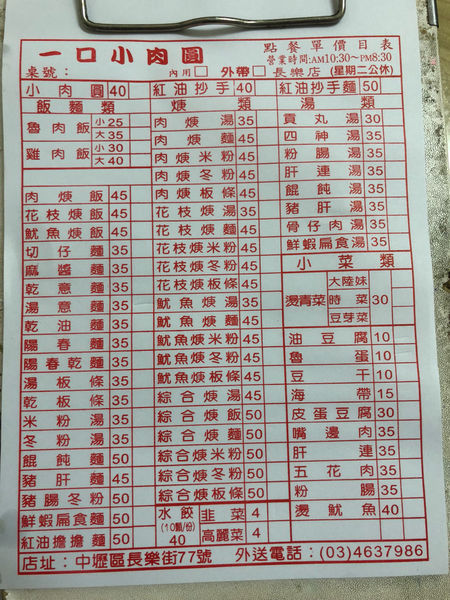 一口小肉圓
點餐單價目表
營業時間:AM10:30~PM8:30
桌號:
內用 外帶 長樂店 (星期二公休)
小肉圓 40
飯麵類
魯肉飯 小25
大35
雞肉飯 小30
大40
肉焿飯 45
花枝焿飯 45
魷魚焿飯 45
切仔麵 35
麻醬麵 35
乾意麵 35
湯意麵 35
乾油麵 35
陽春麵 35
陽春乾麵 35
湯板條 35
乾板條 35
米粉湯 35
冬粉湯 35
餛飩麵 50
豬肝麵 45
豬腸冬粉 50
鮮蝦扁食麵 50
紅油擔擔麵 50
紅油抄手 40
焿類
肉焿湯 35
肉焿麵 45
肉焿米粉 45
肉焿冬粉 45
肉焿板條 45
花枝焿湯 35
花枝焿麵 45
花枝焿米粉 45
花枝焿冬粉 45
花枝焿板條 45
魷魚焿湯 35
魷魚焿麵 45
魷魚焿米粉 45
魷魚焿冬粉 45
魷魚焿板條 45
綜合焿湯 45
綜合焿飯 50
綜合焿麵 50
綜合焿米粉 50
綜合焿冬粉 50
綜合焿板條 50
水餃
(10顆/份)
40
韭菜 4
高麗菜 4
紅油抄手麵 50
湯類
貢丸湯 30
四神湯 35
粉腸湯 35
肝連湯 35
餛飩湯 35
豬肝湯 35
骨仔肉湯 35
鮮蝦扁食湯 35
小菜類
燙青菜 大陸妹
時菜
豆芽菜
30
油豆腐 10
魯蛋 10
豆干 10
海帶 15
皮蛋豆腐 30
嘴邊肉 35
肝連 35
五花肉 35
粉腸 35
燙魷魚 40
店址:中壢區長樂街77號 外送電話:(03)4637986